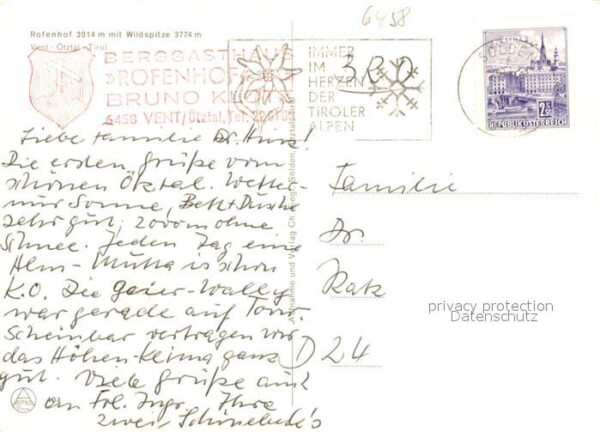 Rofenhof 2014 m mit Wildspitze 3774 m
Vent - Ötztal - Tirol
6458
BERGGASTHAUS
»ROFENHOF«
BRUNO KLOTZ
6458 VENT/Ötztal, Tel.
IMMER
IM
HERZEN
DER
TIROLER
ALPEN
SÖLDEN
2.50
REPUBLIK ÖSTERREICH
Liebe Familie Dr.
Die ersten Grüße vom
schönen Ötztal. Wetter
nur Sonne, Bett + Dusche
sehr gut, 2000 m ohne
Schnee. Jeden Tag eine
Alm - Mutta is schon
K.O. Die Geier-Wally
war gerade auf Tour.
Scheinbar vertragen wir
das Höhen-Klima ganz
gut. Viele Grüße auch
an Frl. Inge, Ihre
zwei
Aufnahme und Verlag Ch. Sölden, Ötztal, Tirol
Familie
Dr.
Katz
D 24
privacy protection
Datenschutz